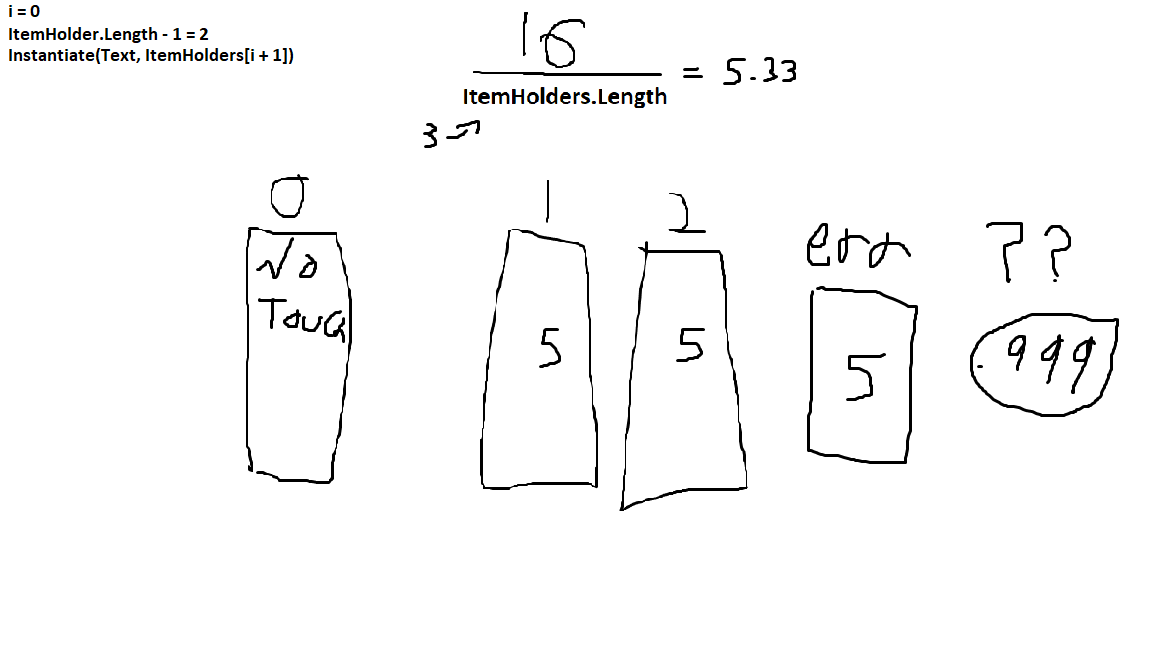 i = 0
ItemHolder.Length - 1 = 2
Instantiate(Text, ItemHolders[i + 1])
16
ItemHolders.Length
= 5.33
3
0
1
2
err
??
No
Touch
5
5
5
.999